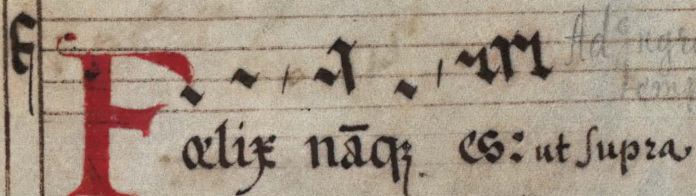 Fœlix nāqꝫ es: ut supra